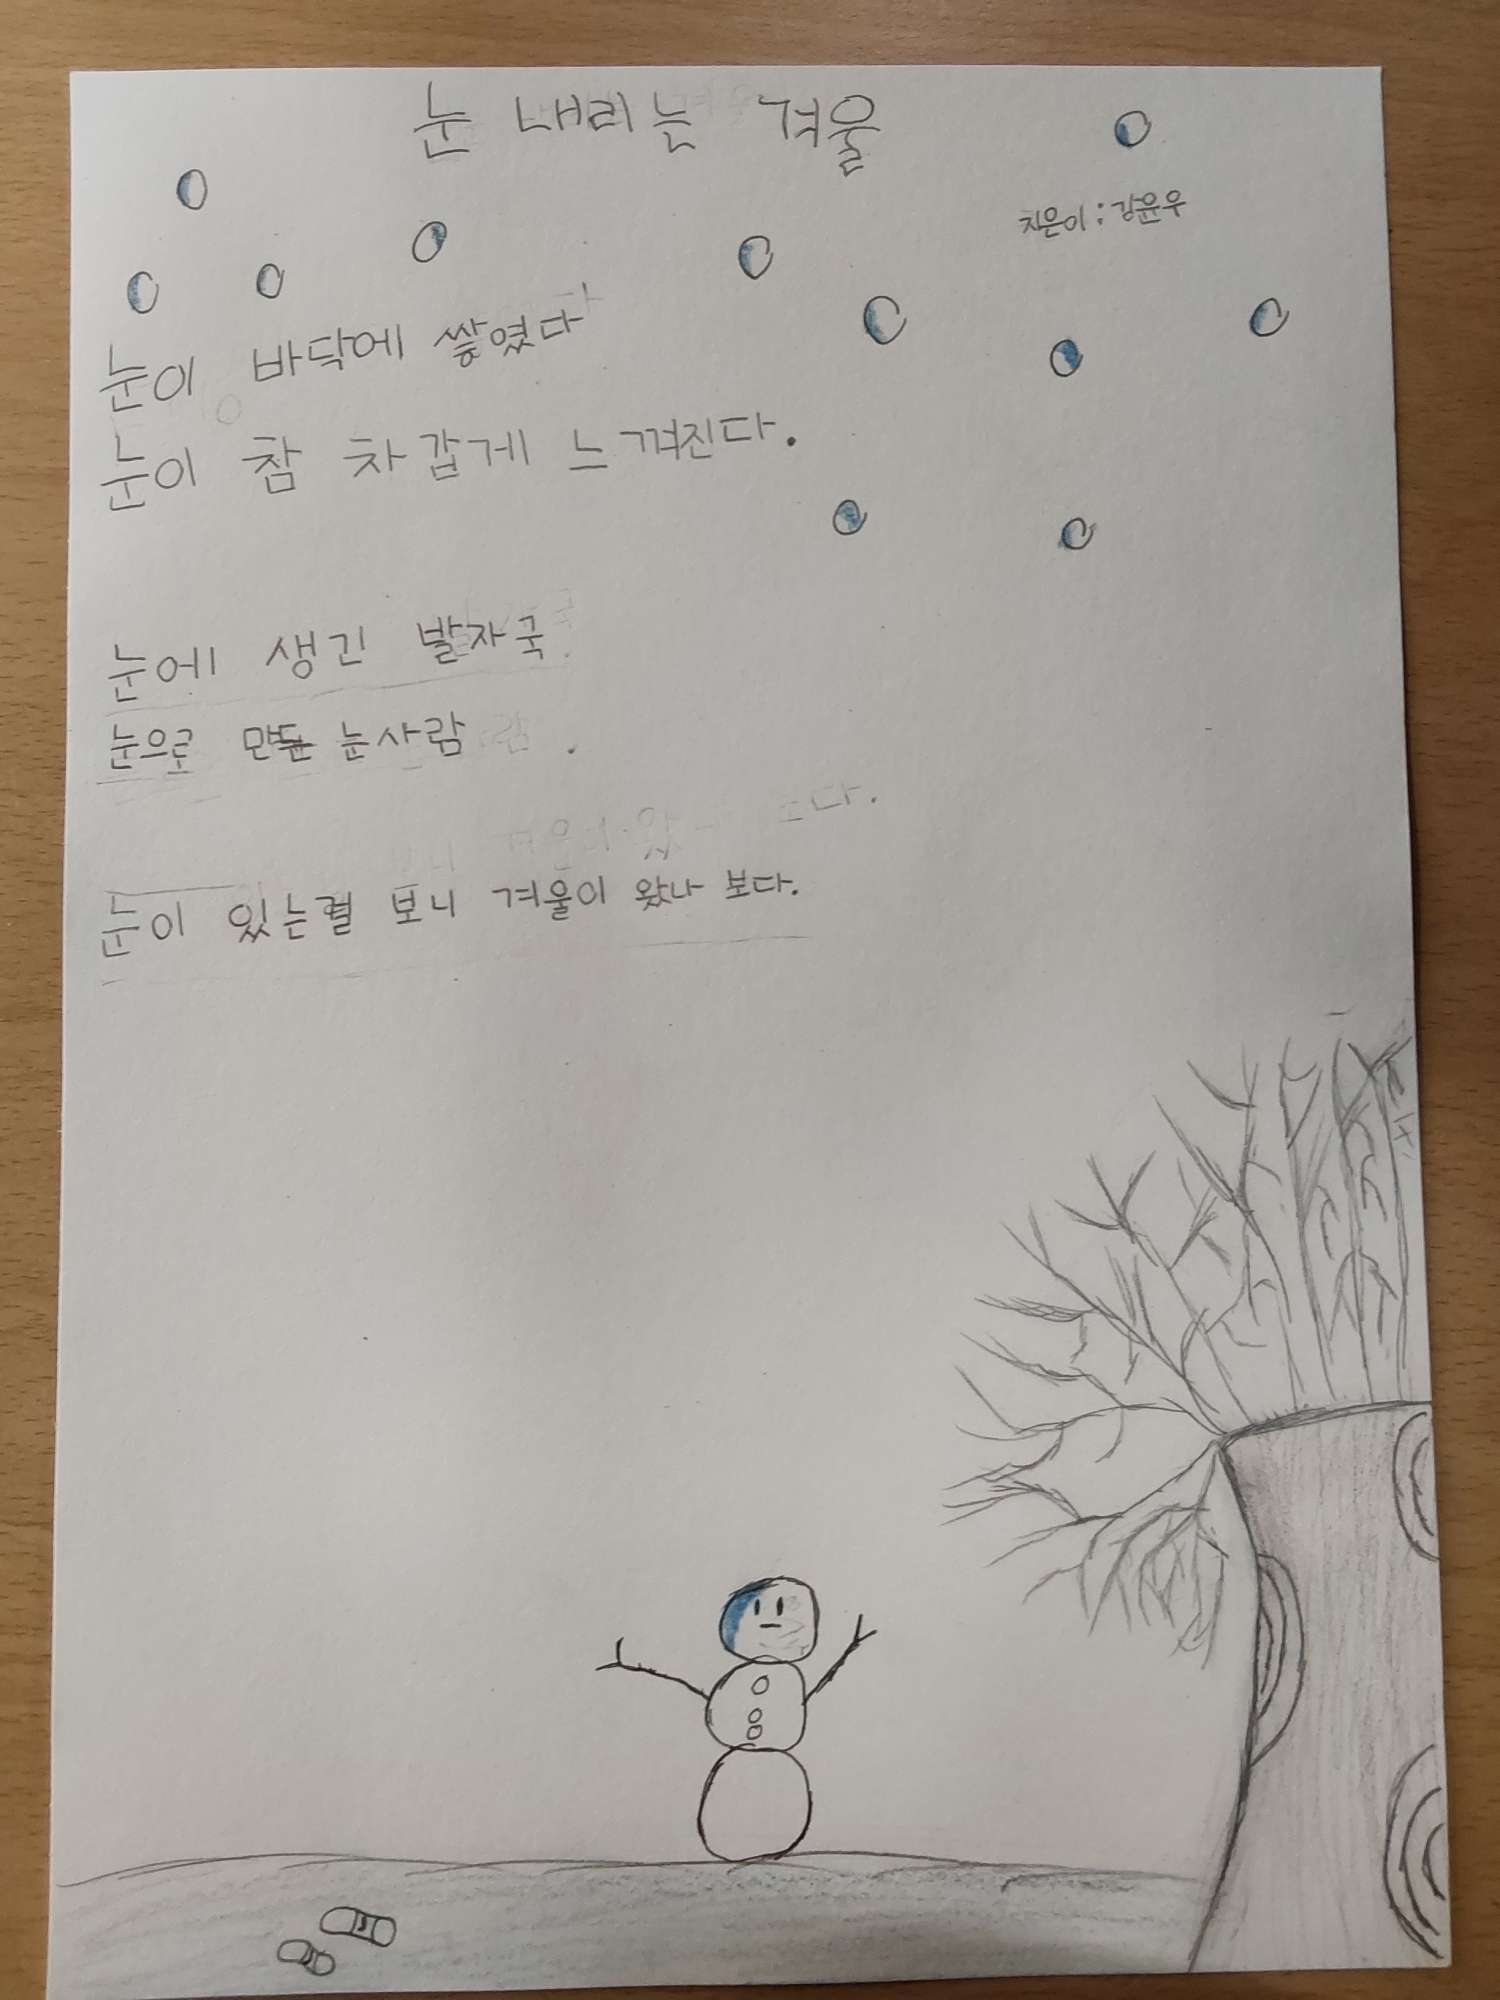 눈 내리는 겨울
지은이 : 강윤우
눈이 바닥에 쌓였다
눈이 참 차갑게 느껴진다.
눈에 생긴 발자국
눈으로 만든 눈사람
눈이 있는걸 보니 겨울이 왔나 보다.